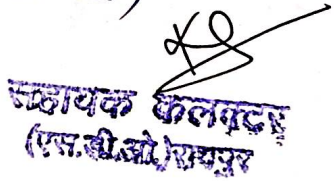 सहायक कलक्टर
(एस.डी.ओ.)रायपुर